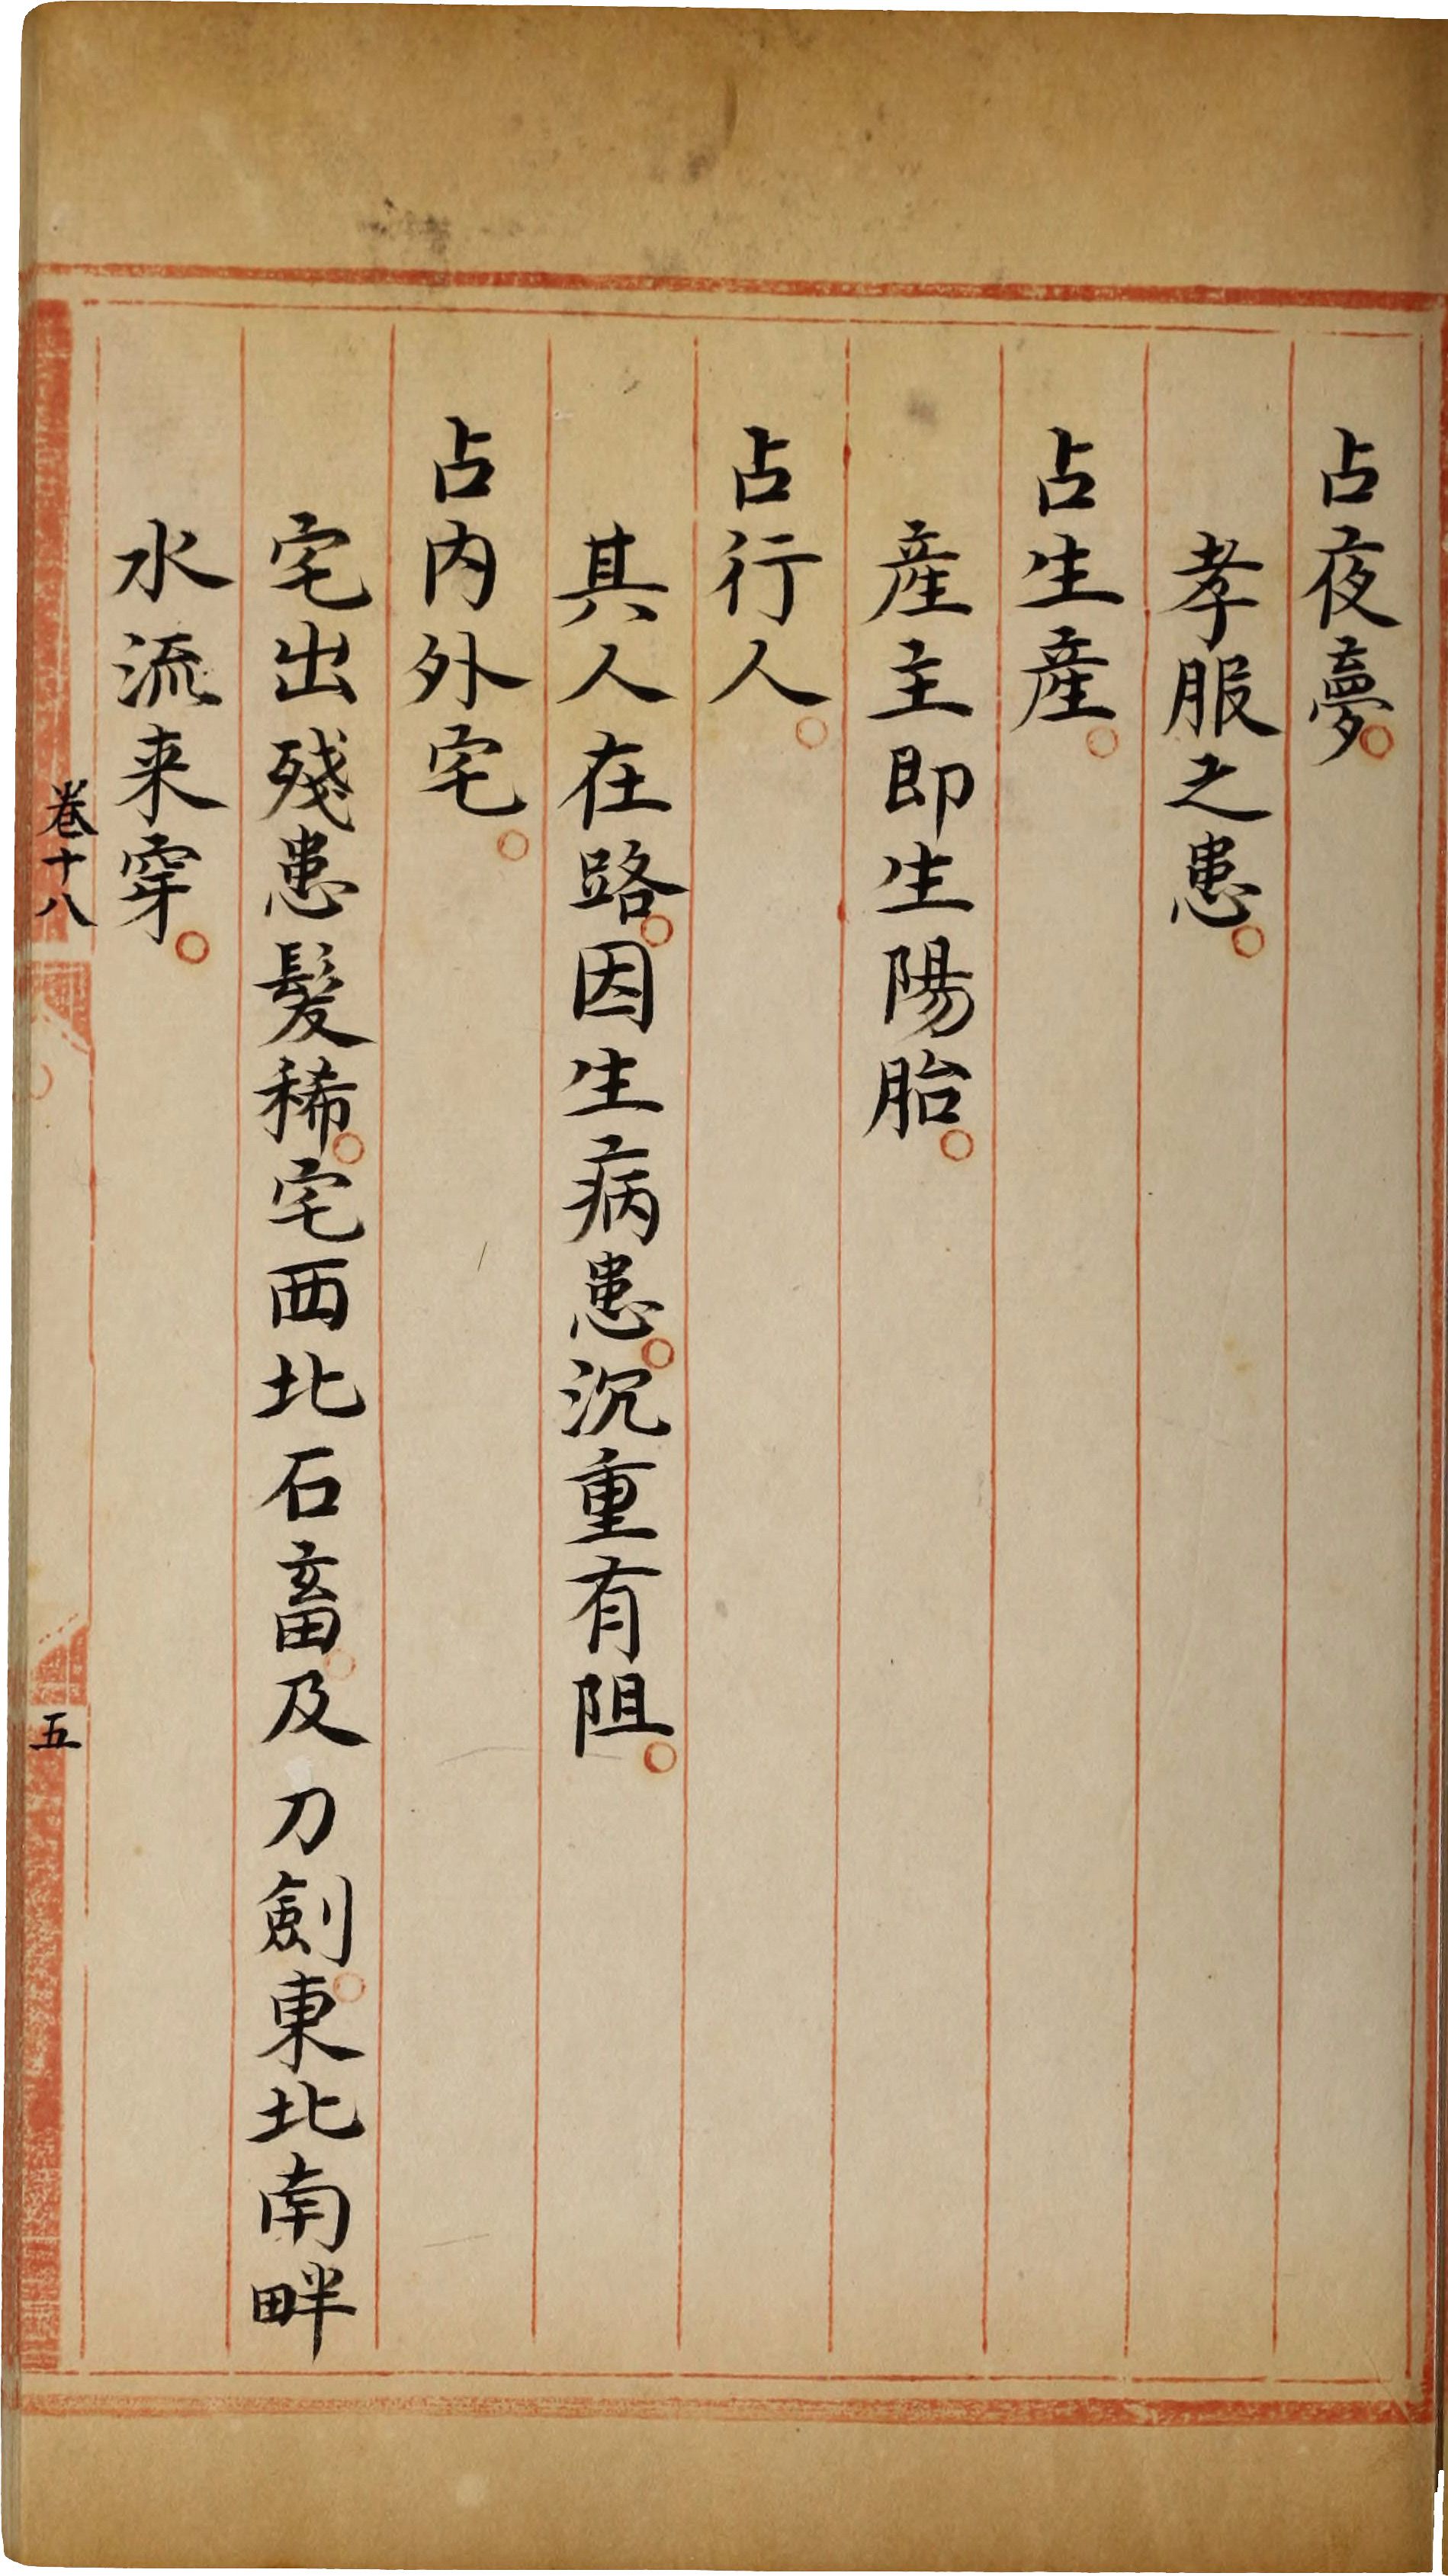 占夜夢。
孝服之患。
占生産。
産主即生陽胎。
占行人。
其人在路。因生病患。沉重有阻。
占内外宅。
宅出殘患髮稀。宅西北石畜。及刀劍。東北南畔
水流来穿。
卷十八
五